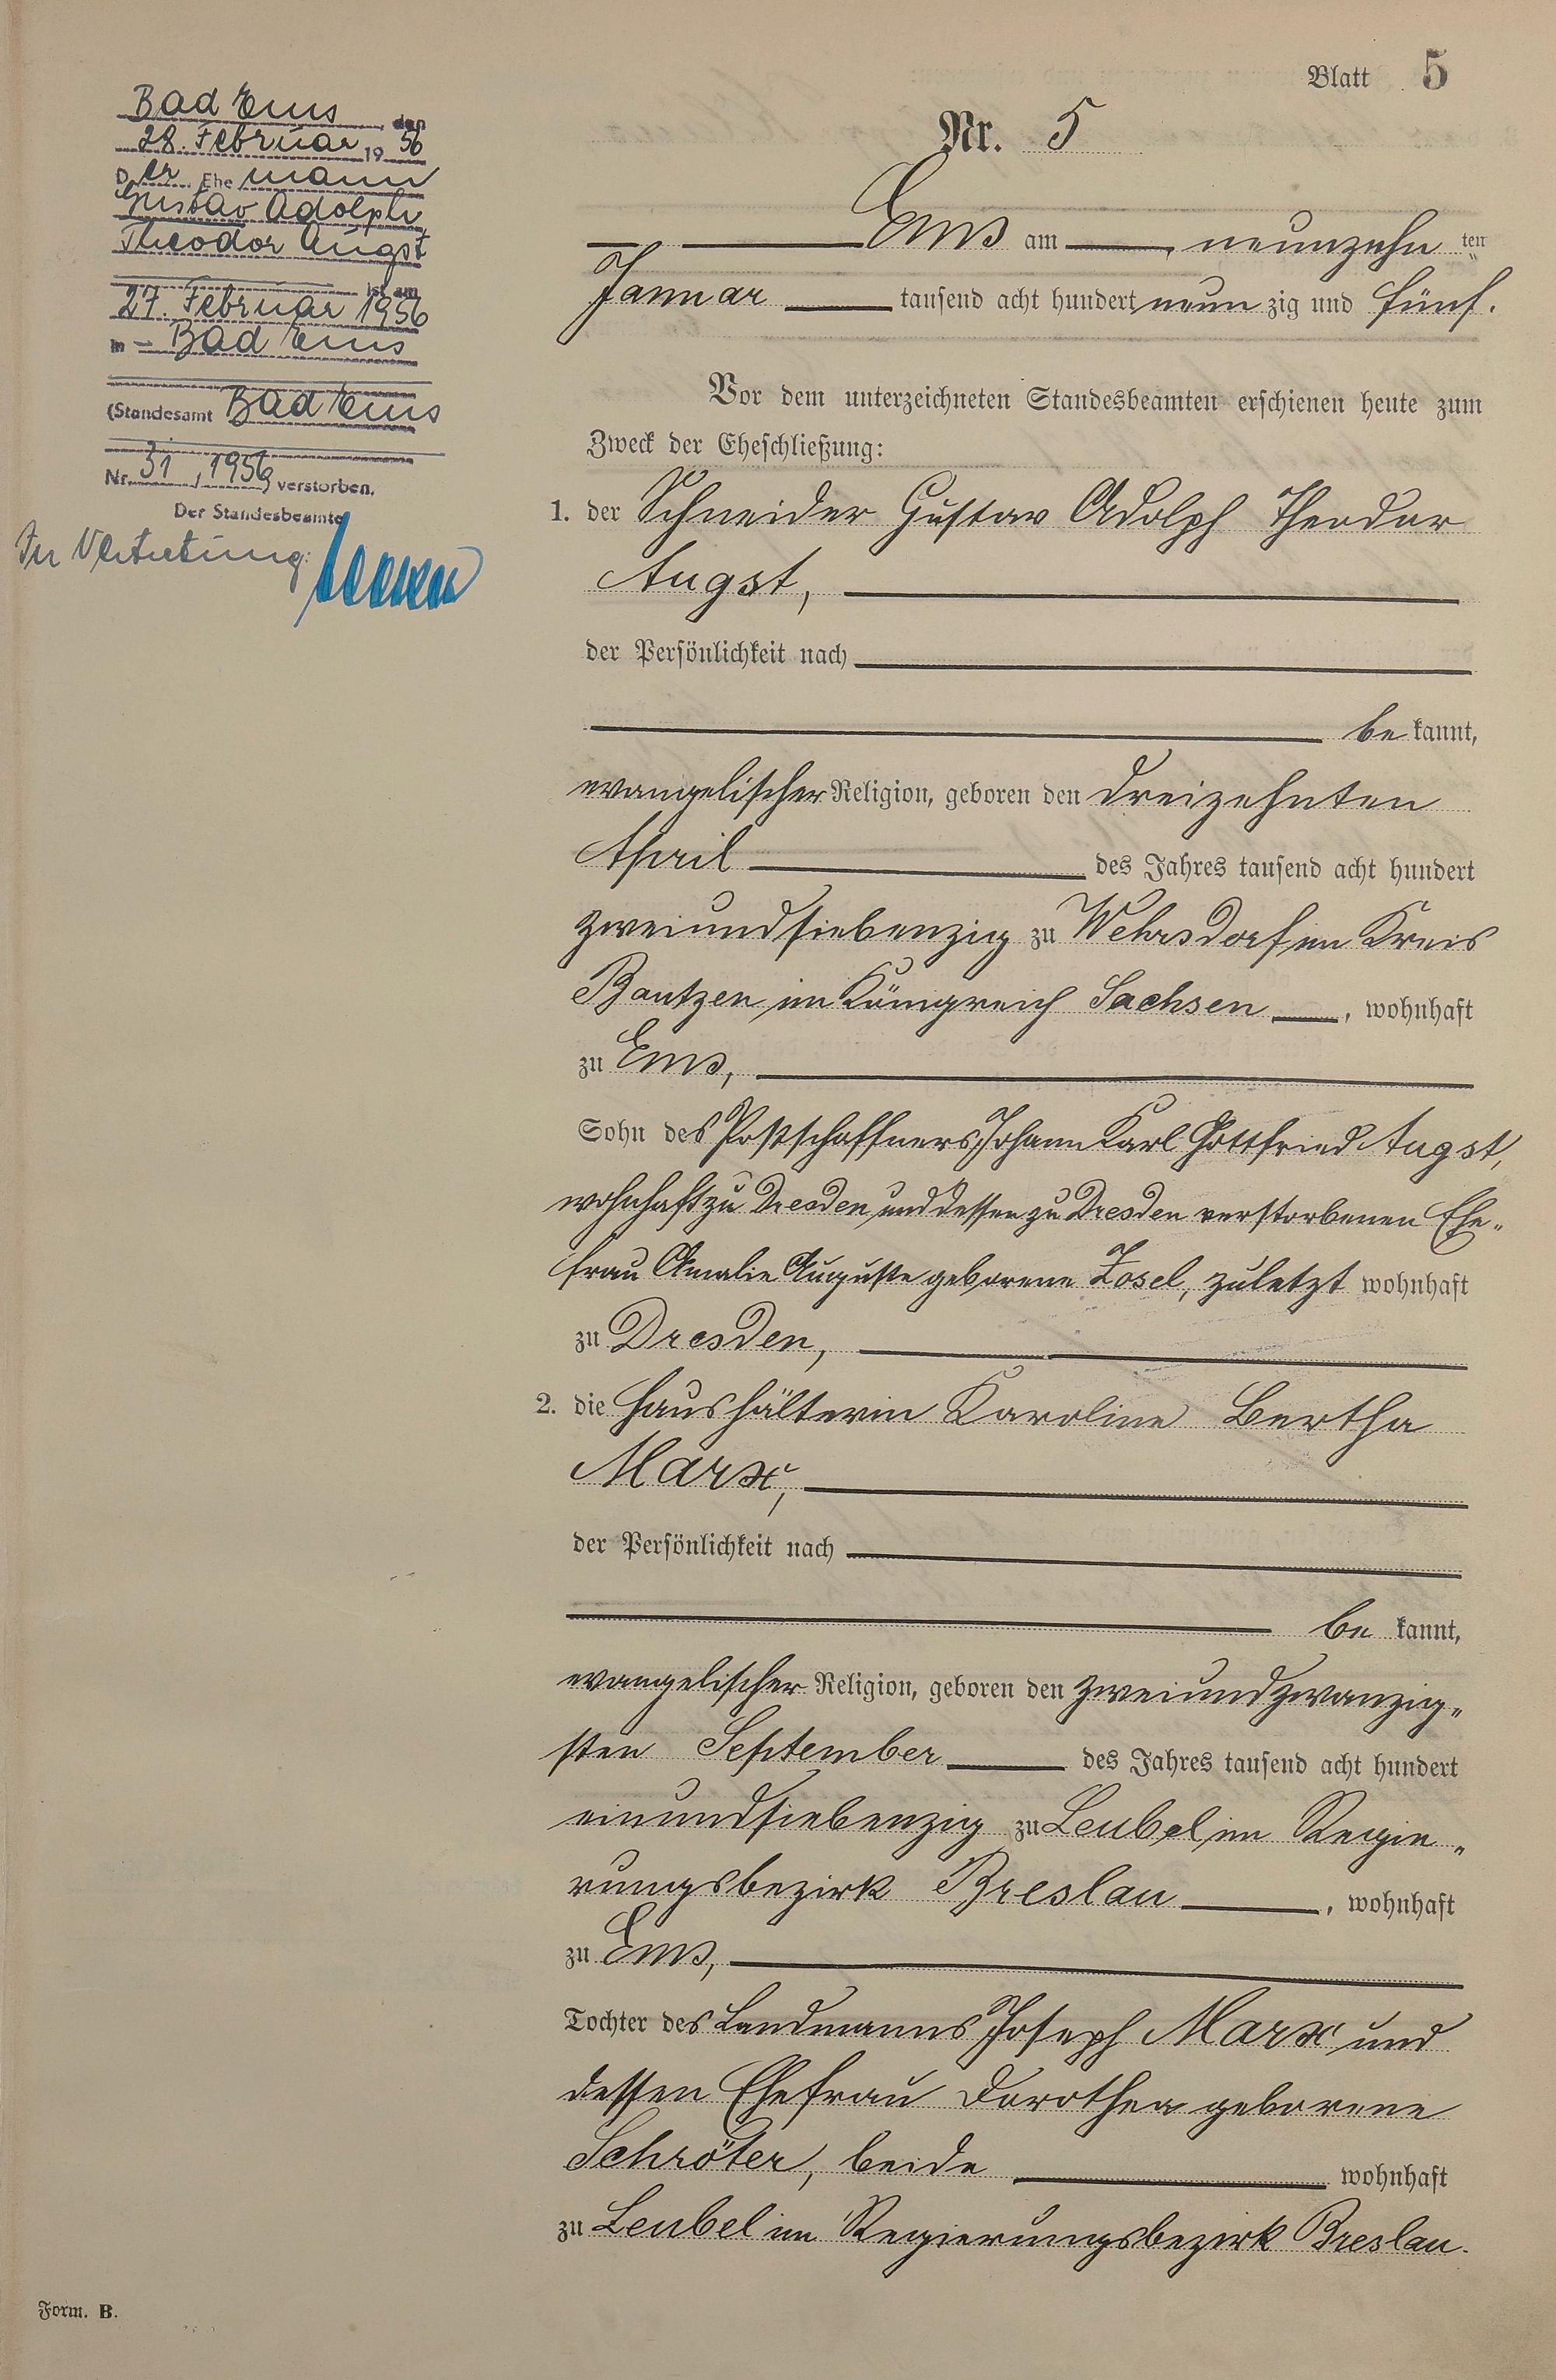 Blatt 5
Nr. 5
Ems am neunzehn ten
Januar tausend acht hundert neun zig und fünf.
Vor dem unterzeichneten Standesbeamten erschienen heute zum
Zweck der Eheschließung:
1. der Schneider Gustav Adolph Theodor
Augst,
der Persönlichkeit nach
be kannt,
evangelischer Religion, geboren den dreizehnten
April des Jahres tausend acht hundert
zweiundsiebenzig zu Wehrsdorf im Kreis
Bautzen im Königreich Sachsen, wohnhaft
zu Ems,
Sohn des Postschaffners Johann Karl Gottfried Augst,
wohnhaft zu Dresden und dessen zu Dresden verstorbenen Ehe„
frau Amalie Auguste geborene Zosel, zuletzt wohnhaft
zu Dresden,
2. die Haushälterin Karoline Bertha
Marx,
der Persönlichkeit nach
be kannt,
evangelischer Religion, geboren den zweiundzwanzig„
sten September des Jahres tausend acht hundert
einundsiebenzig zu Leubel im Regie„
rungsbezirk Breslau, wohnhaft
zu Ems,
Tochter des Landmanns Joseph Marx und
dessen Ehefrau Dorothea geborene
Schröter, beide wohnhaft
zu Leubel im Regierungsbezirk Breslau.
Bad Ems, den
28. Februar 19 56
Der Ehe mann
Gustav Adolph
Theodor Augst
ist am
27. Februar 1956
in - Bad Ems
(Standesamt Bad Ems
Nr. 31 / 1956) verstorben.
Der Standesbeamte
In Vertretung:
Form. B.